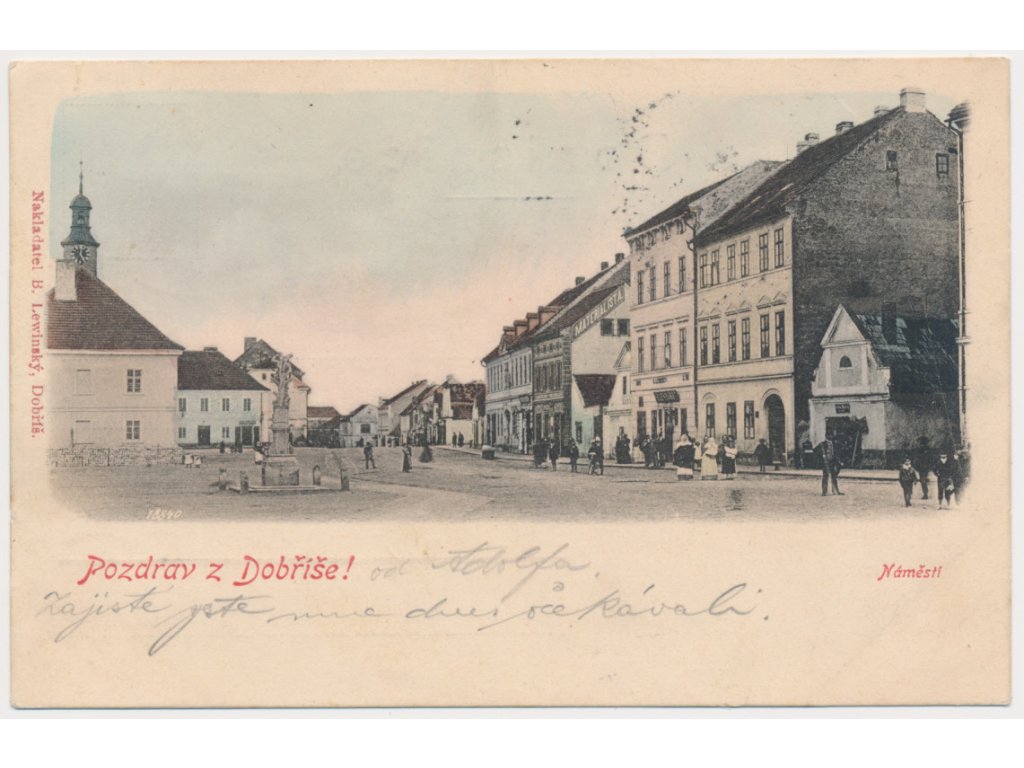 Nakladatel B. Lewinský, Dobříš.
MATERIALISTA.
13540
Pozdrav z Dobříše! od Adolfa.
Náměstí
Zajisté jste mne dnes očekávali.